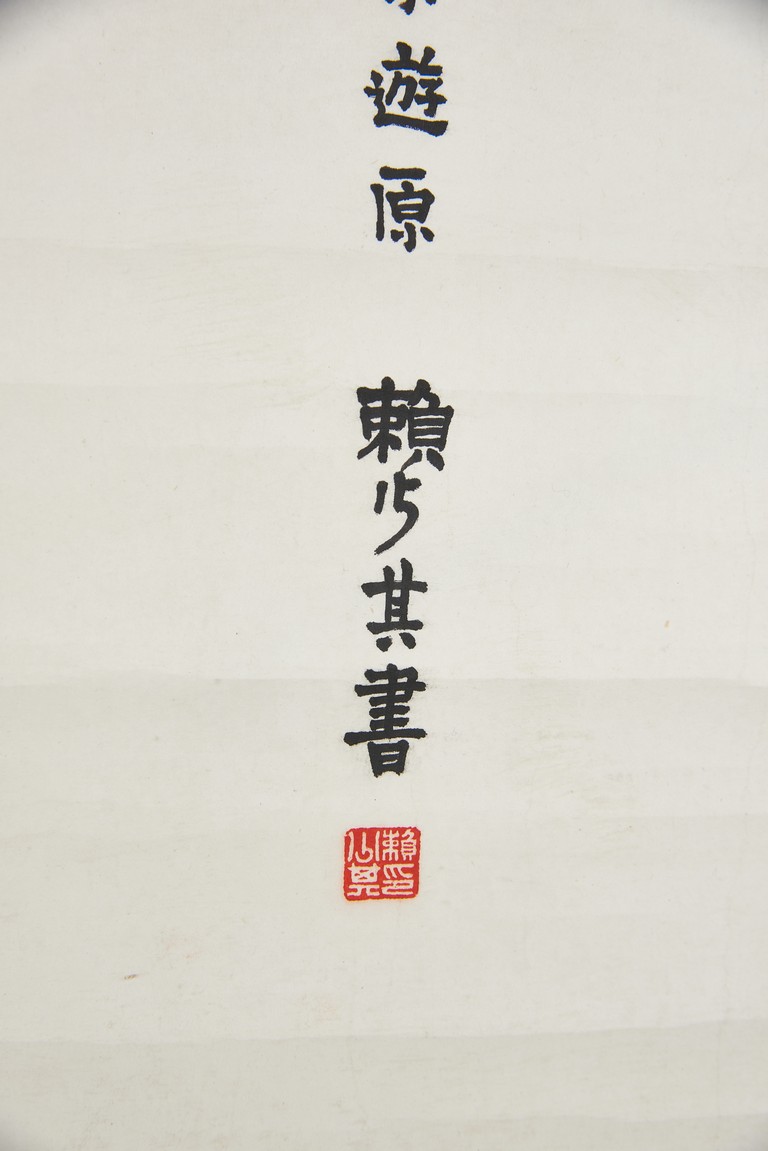 遊原
賴少其書
賴少其印